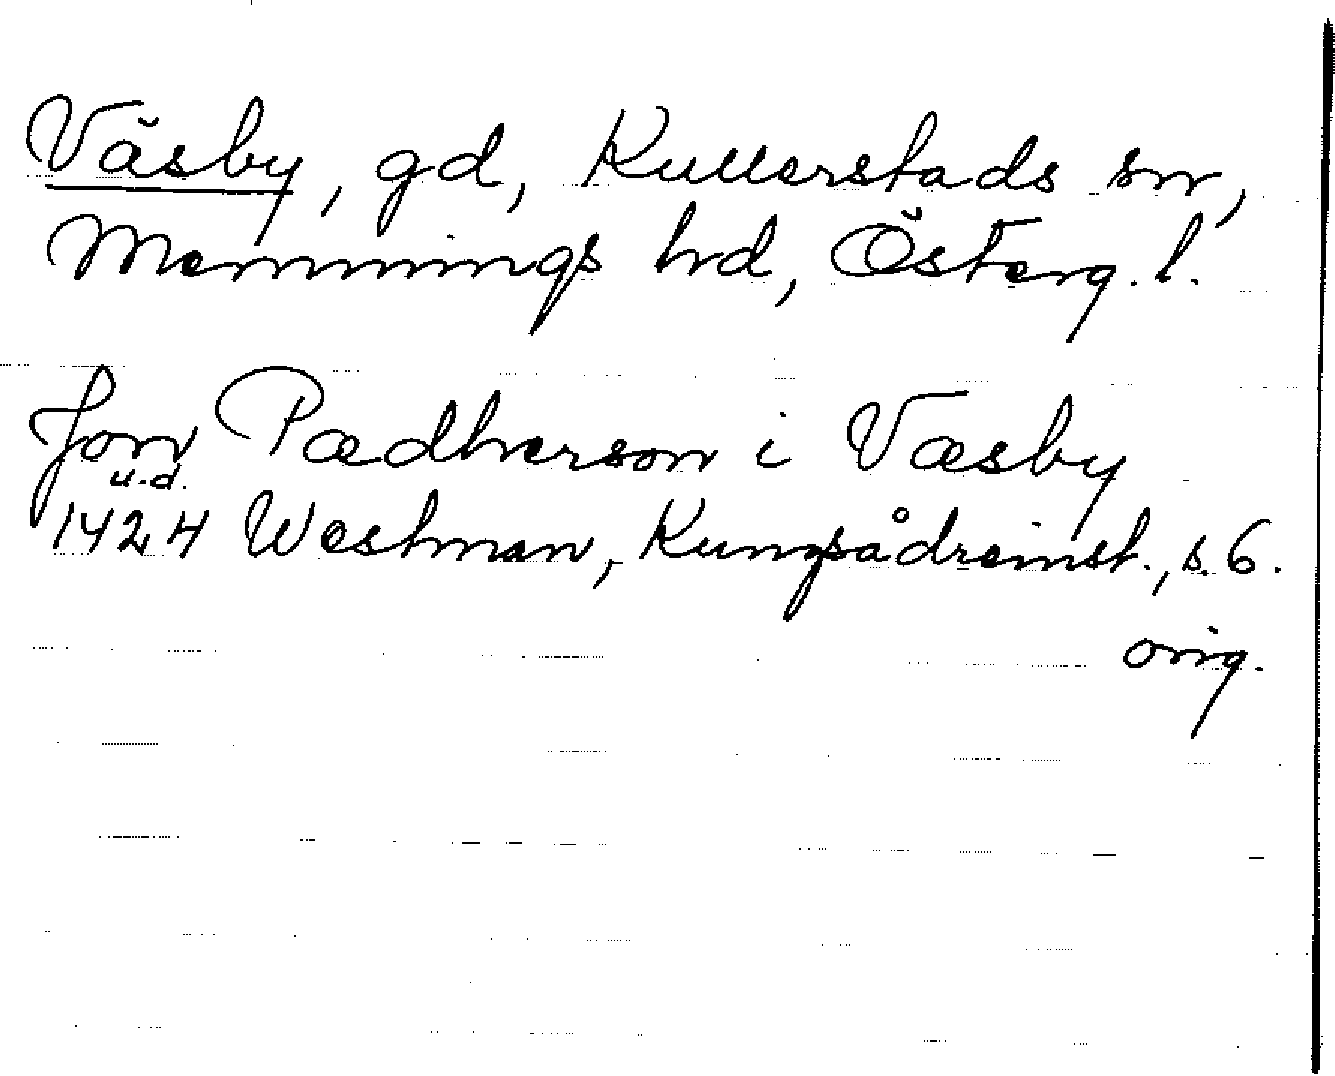 Väsby, gd, Kullerstads sn,
Memmings hd, Österg. l.
Jon Pædherson i Væsby
u.d.
1424 Westman, Kungsådreinst., s. 6.
orig.